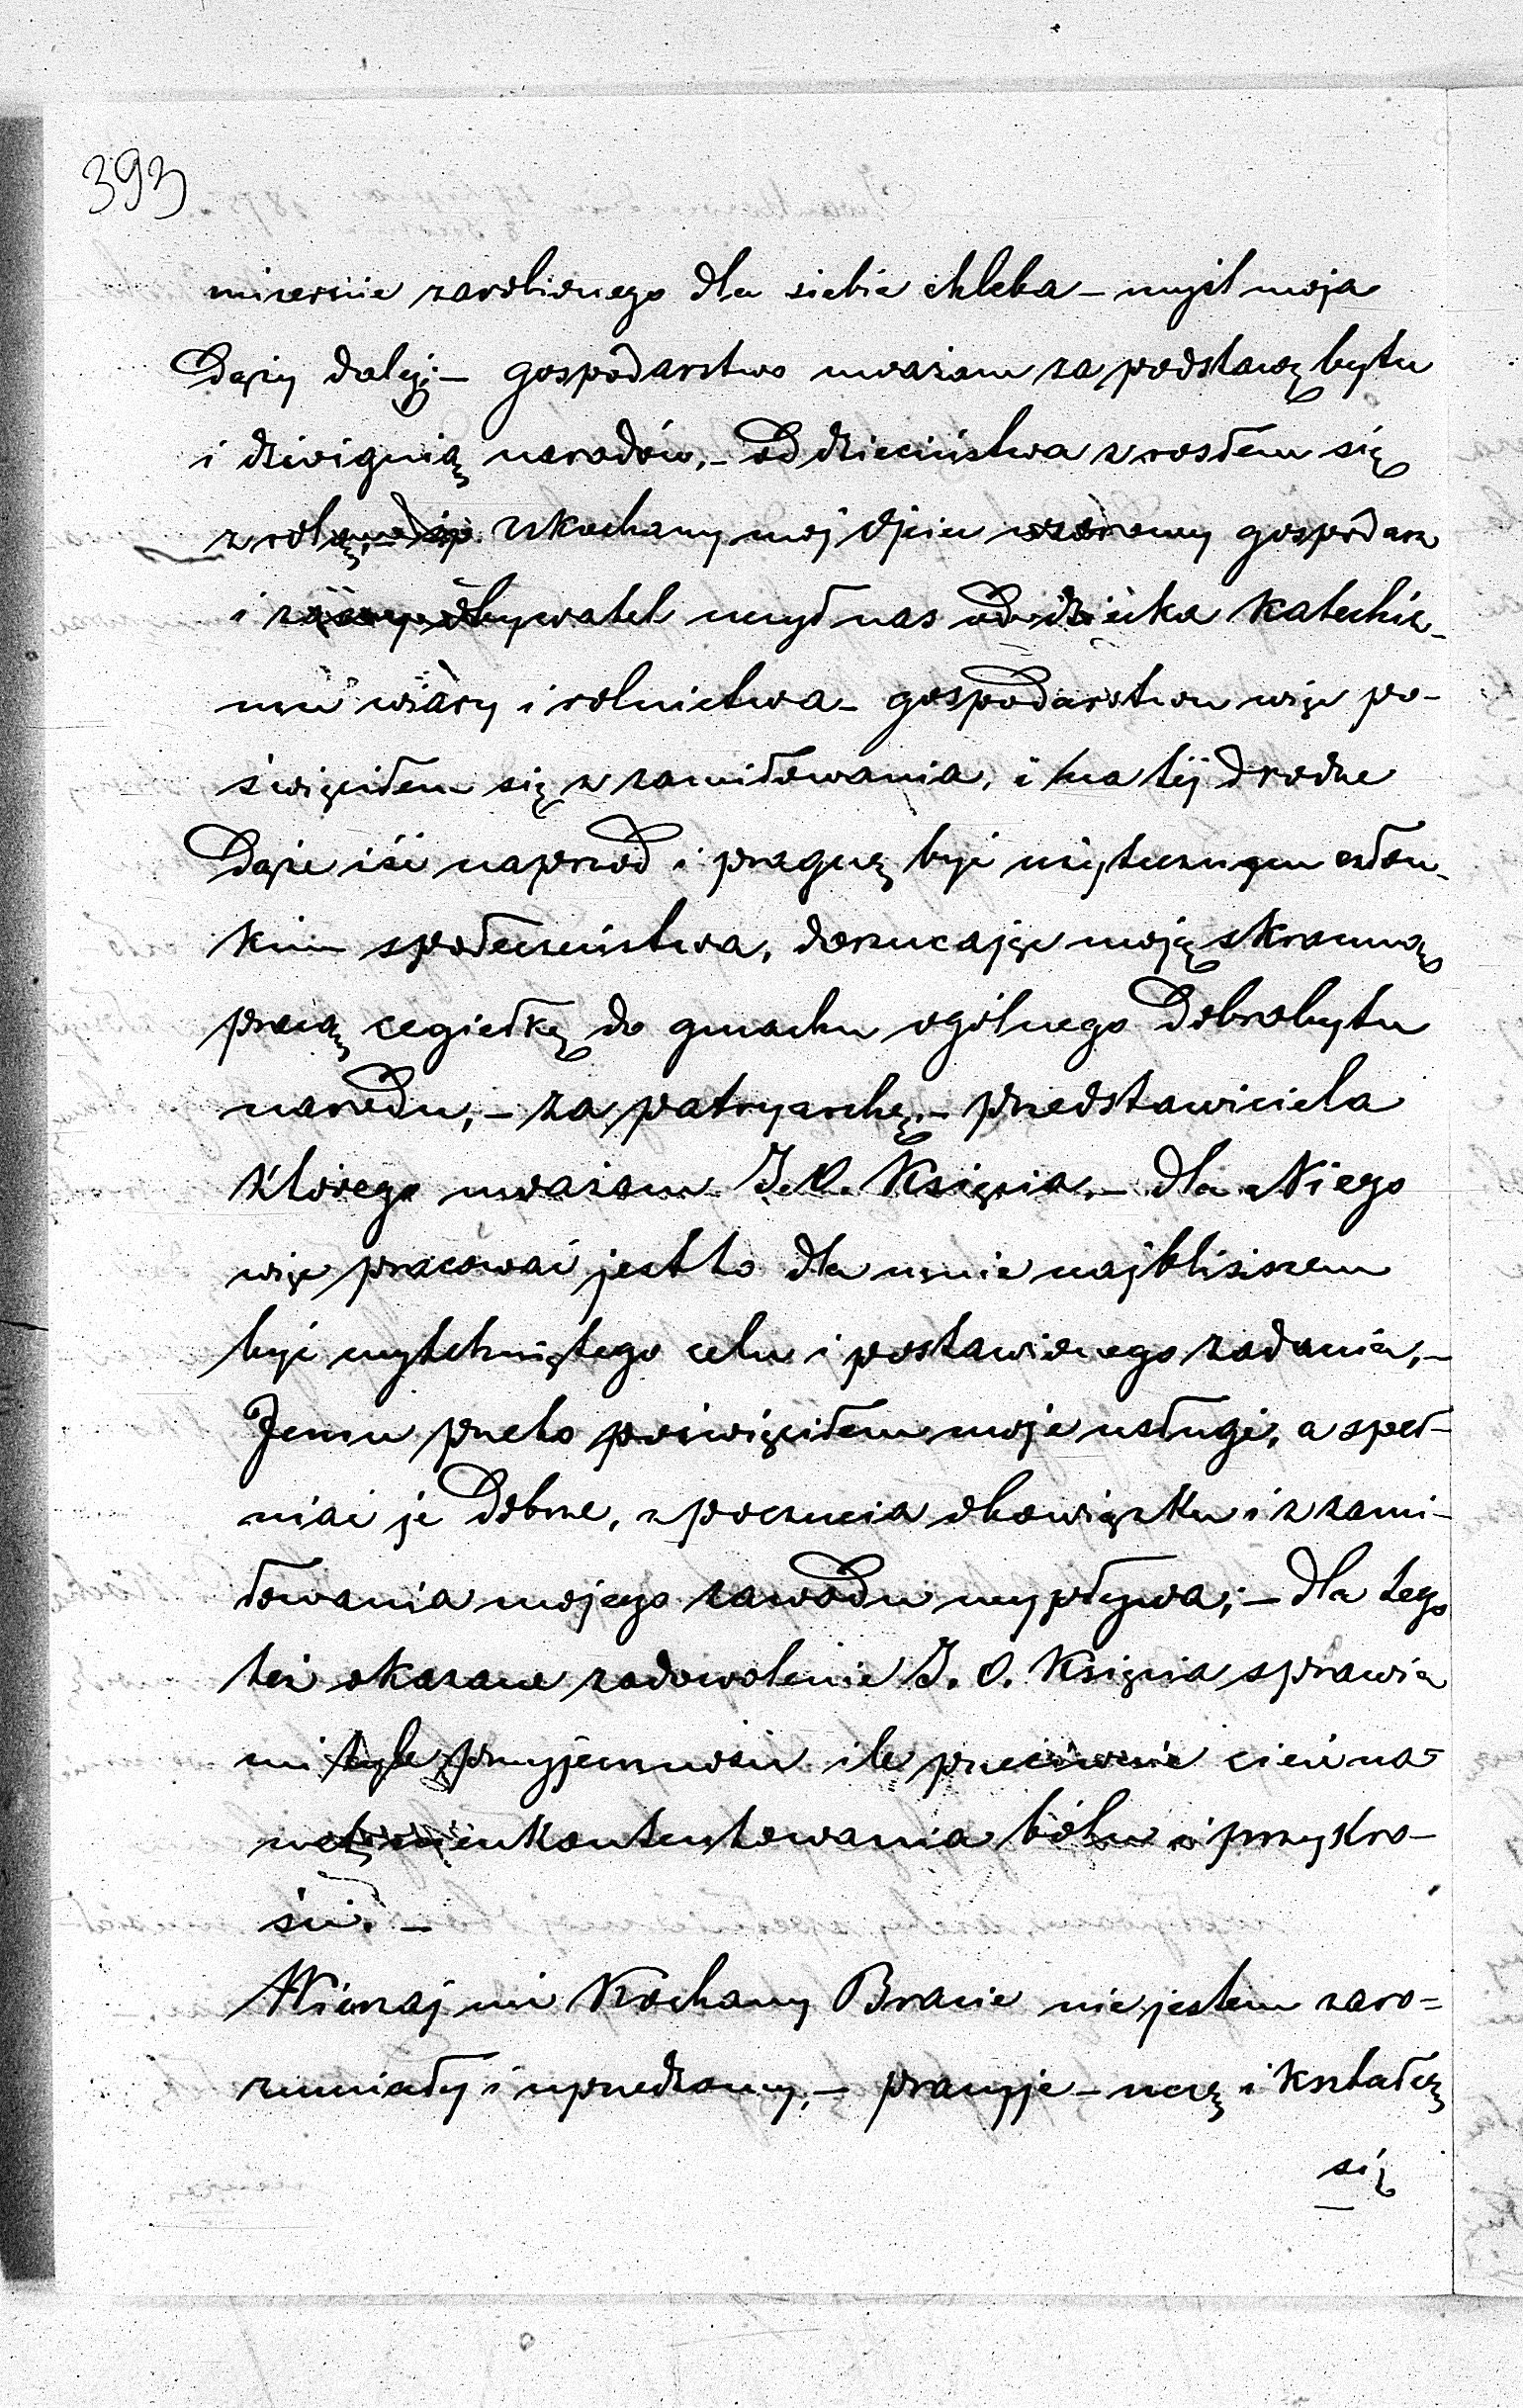 393
mizernie zarobionego dla siebie chleba – myśl moja
dąży daléj; – gospodarstwo uważam za podstawę bytu
i dźwignią narodów, – od dzieciństwa zrosłem się
z rolą, – ukochany mój ojciec wzorowy gospodarz
i zacny obywatel uczył nas od dziecka katechiz-
mu wiary i rolnictwa – gospodarstwu więc po-
święciłem się z zamiłowania, i na téj drodze
dążę iść naprzód i pragnę być użytecznym człon-
kiem społeczeństwa, dorzucając moją skromną
pracą cegiełkę do gmachu ogólnego dobrobytu
narodu, – za patryarchę, – przedstawiciela
którego uważam J. O. Księcia, – dla Niego
więc pracować jest to dla mnie najbliższem
być wytchniętego celu i postawionego zadania, –
Jemu przeto poświęciłem moje usługi, a speł-
niać je dobrze, z poczucia obowiązku i z zami-
łowania mojego zawodu wypływa; – dla tego
też okazane zadowolenie J. O. Księcia sprawia
mi tyle przyjemności ile przeciwnie cień na-
wet nieukontentowania bólu i przykro-
ści. –
Wierzaj mi Kochany Bracie nie jestem zaro-
zumiały i uprzedzony, – pracuję – uczę i kształcę
się